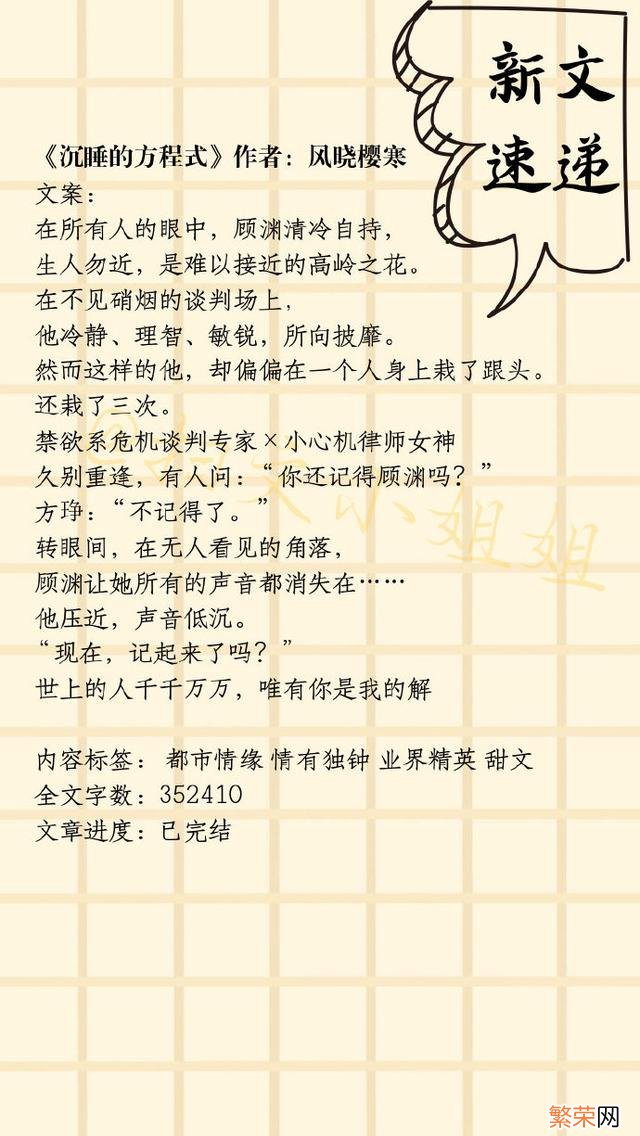 新文
速递
《沉睡的方程式》作者：风晓樱寒
文案：
在所有人的眼中，顾渊清冷自持，
生人勿近，是难以接近的高岭之花。
在不见硝烟的谈判场上，
他冷静、理智、敏锐，所向披靡。
然而这样的他，却偏偏在一个人身上栽了跟头。
还栽了三次。
禁欲系危机谈判专家×小心机律师女神
久别重逢，有人问：“你还记得顾渊吗？”
方琤：“不记得了。”
转眼间，在无人看见的角落，
顾渊让她所有的声音都消失在……
他压近，声音低沉。
“现在，记起来了吗？”
世上的人千千万万，唯有你是我的解
内容标签： 都市情缘 情有独钟 业界精英 甜文
全文字数：352410
文章进度：已完结
@扫文小姐姐
繁荣网